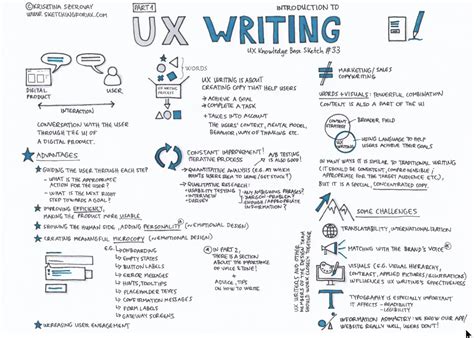 ©KRISZTINA SZEROVAY
WWW.SKETCHINGFORUX.COM
PART 1
INTRODUCTION TO
UX WRITING
UX Knowledge Base Sketch #33
DIGITAL
PRODUCT
USER
INTERACTION
CONVERSATION WITH THE USER
THROUGH THE UI OF
A DIGITAL PRODUCT.
WORDS
UX WRITING
PROCESS
UX WRITING IS ABOUT
CREATING COPY THAT HELP USERS
→ ACHIEVE A GOAL
→ COMPLETE A TASK
+ TAKES INTO ACCOUNT
THE USERS' CONTEXT, MENTAL MODEL,
BEHAVIOR, WAY OF THINKING ETC.
≠ MARKETING/SALES
COPYWRITING
WORDS + VISUALS: POWERFUL COMBINATION
CONTENT IS ALSO A PART OF THE UI
CONTENT
STRATEGY
BROADER FIELD
UX
WRITING
USING LANGUAGE TO HELP
USERS ACHIEVE THEIR GOALS
IN MANY WAYS IT IS SIMILAR TO TRADITIONAL WRITING
(IT SHOULD BE COHERENT, COMPREHENSIBLE,
APPROPRIATE FOR THE TARGET AUDIENCE ETC.),
BUT IT IS A SPECIAL, CONCENTRATED COPY.
ADVANTAGES
GUIDING THE USER THROUGH EACH STEP
- WHAT IS THE APPROPRIATE
ACTION FOR THE USER?
- WHAT IS THE NEXT STEP
TOWARDS A GOAL?
IMPROVING EFFICIENCY,
MAKING THE PRODUCT MORE USABLE
SHOWING THE HUMAN SIDE, ADDING PERSONALITY (→EMOTIONAL DESIGN)
CREATING MEANINGFUL MICROCOPY (→EMOTIONAL DESIGN)
E.G.
ONBOARDING
EMPTY STATES
BUTTON LABELS
ERROR MESSAGES
HINTS, TOOLTIPS
PLACEHOLDER TEXTS
CONFIRMATION MESSAGES
FORM LABELS
GATEWAY SCREENS
INCREASING USER ENGAGEMENT
CONSTANT IMPROVEMENT!
ITERATIVE PROCESS
A/B TESTING
IS ALSO GOOD!
QUANTITATIVE ANALYSIS (E.G. AT WHICH
POINTS WERE USERS KEEN TO LEAVE)
QUALITATIVE RESEARCH:
- USABILITY TESTING
- INTERVIEWS
- DIARY STUDY
- ANY AMBIGUOUS PHRASES?
- HARD TO UNDERSTAND?
- PROBLEM?
- ENOUGH (+ APPROPRIATE)
INFORMATION?
IN PART 2,
THERE IS A SECTION
ABOUT THE IMPORTANCE
OF VOICE & TONE!
+
ADVICE, TIPS
ON HOW TO WRITE
UX WRITERS AND OTHER
MEMBERS OF THE DESIGN TEAM
SHOULD WORK CLOSELY TOGETHER
SOME CHALLENGES
TRANSLATABILITY, INTERNATIONALIZATION
MATCHING WITH THE BRAND'S VOICE
VISUALS (E.G. VISUAL HIERARCHY,
CONTRAST, APPLIED PICTURES/ILLUSTRATIONS)
INFLUENCES UX WRITING'S EFFECTIVENESS
TYPOGRAPHY IS ESPECIALLY IMPORTANT
IT AFFECTS
→ READABILITY
→ UNDERSTANDING
INFORMATION ASYMMETRY: WE KNOW OUR APP/
WEBSITE REALLY WELL, USERS DON'T!